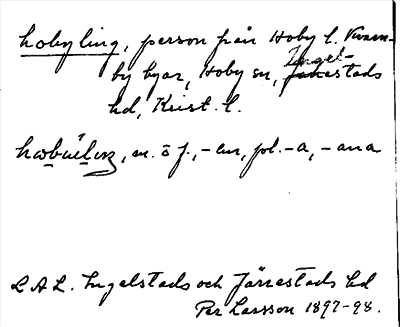 hobyling, person från Hoby l. Kvarn-
by byar, Hoby sn, Ingel-
stads
hd, Krist. l.
m. o f., -en, pl. -a, -ana
L A L. Ingelstads och Järrestads hd
Per Larsson 1897-98.